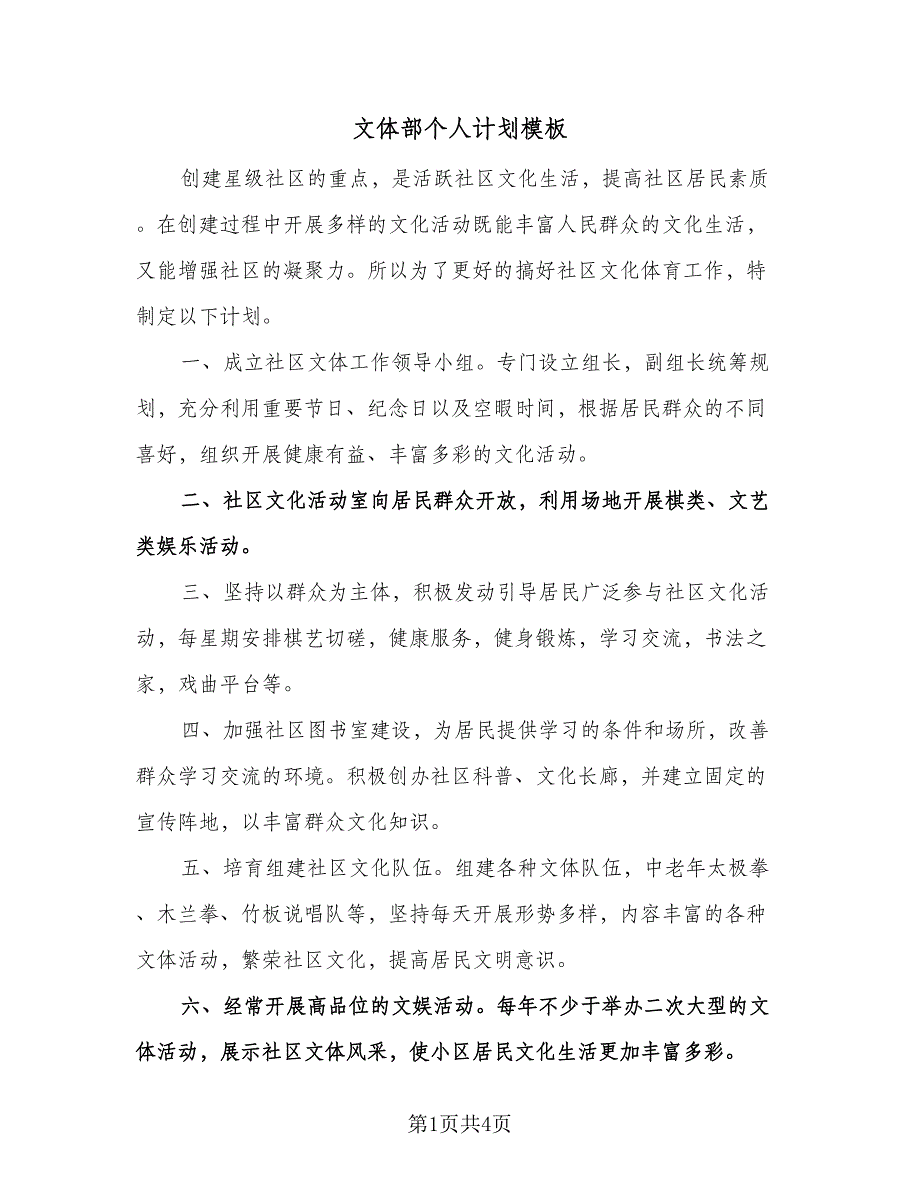 文体部个人计划模板
创建星级社区的重点，是活跃社区文化生活，提高社区居民素质
。在创建过程中开展多样的文化活动既能丰富人民群众的文化生活，
又能增强社区的凝聚力。所以为了更好的搞好社区文化体育工作，特
制定以下计划。
一、成立社区文体工作领导小组。专门设立组长，副组长统筹规
划，充分利用重要节日、纪念日以及空暇时间，根据居民群众的不同
喜好，组织开展健康有益、丰富多彩的文化活动。
二、社区文化活动室向居民群众开放，利用场地开展棋类、文艺
类娱乐活动。
三、坚持以群众为主体，积极发动引导居民广泛参与社区文化活
动，每星期安排棋艺切磋，健康服务，健身锻炼，学习交流，书法之
家，戏曲平台等。
四、加强社区图书室建设，为居民提供学习的条件和场所，改善
群众学习交流的环境。积极创办社区科普、文化长廊，并建立固定的
宣传阵地，以丰富群众文化知识。
五、培育组建社区文化队伍。组建各种文体队伍，中老年太极拳
、木兰拳、竹板说唱队等，坚持每天开展形势多样，内容丰富的各种
文体活动，繁荣社区文化，提高居民文明意识。
六、经常开展高品位的文娱活动。每年不少于举办二次大型的文
体活动，展示社区文体风采，使小区居民文化生活更加丰富多彩。
第1页共4页